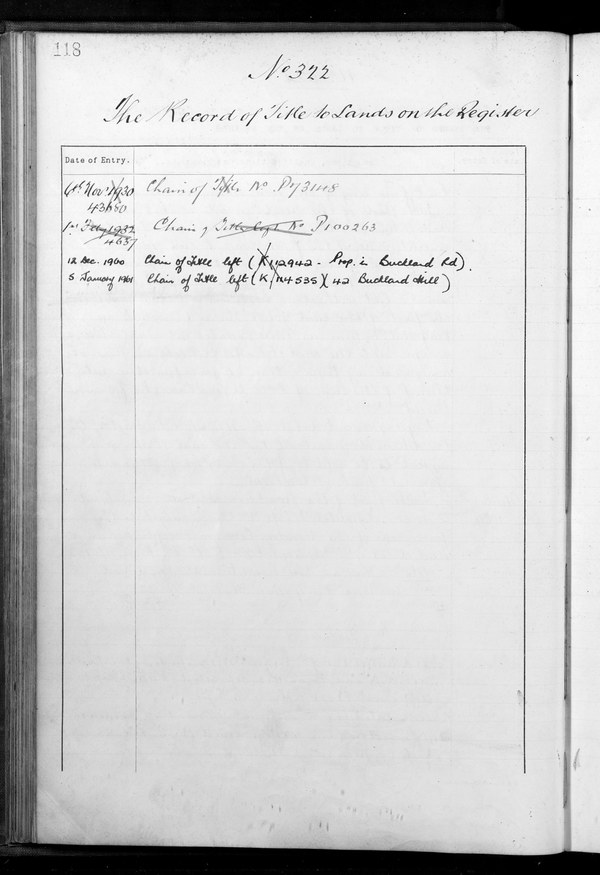 118
No. 322
The Record of Title to Lands on the Register
Date of Entry.
6th Nov 1930 Chain of Title No. P73148
43680
1st Feby 1932 Chain of Title No P100263
4637
12 Dec. 1960 Chain of Title left (K 112942 - Prop. in Buckland Rd).
5 January 1961 Chain of Title left (K 114535) (42 Buckland Hill)